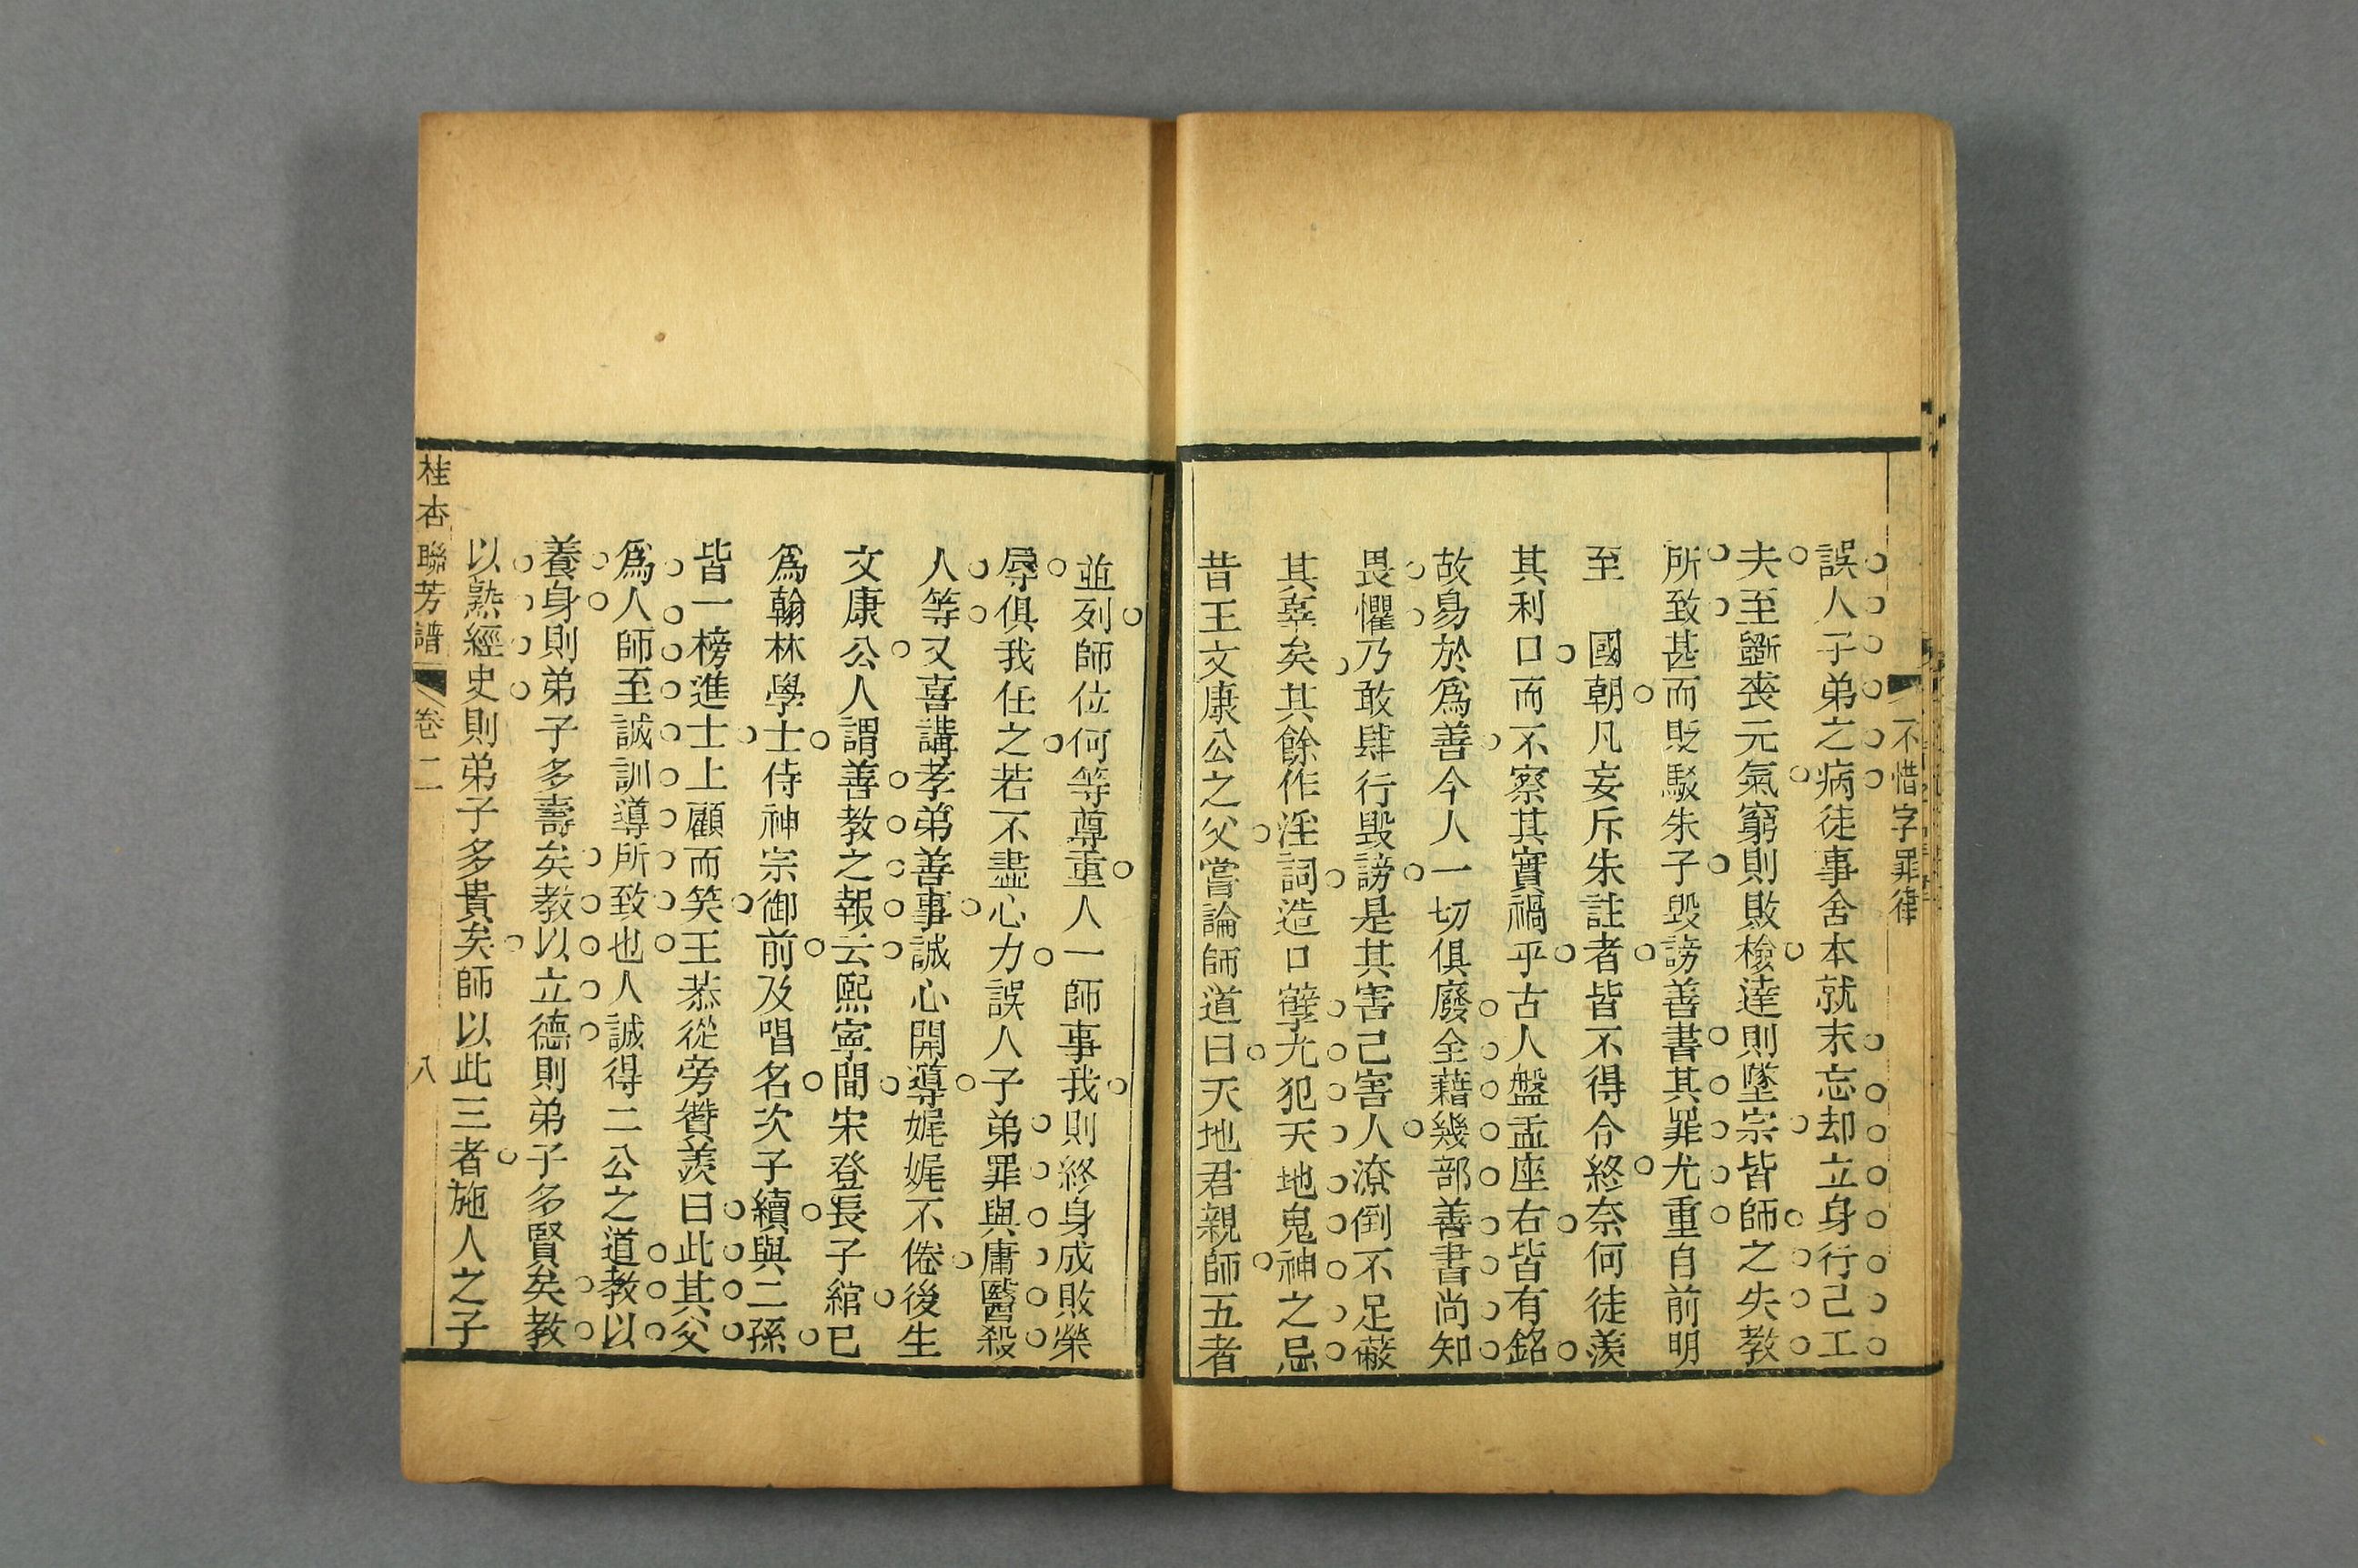 不惜字罪律
誤人子弟之病徒事舍本就末忘却立身行己工
夫至斵喪元氣窮則敗檢達則墜宗皆師之失教
所致甚而貶駁朱子毁謗善書其罪尤重自前明
至　國朝凡妄斥朱註者皆不得令終奈何徒羨
其利口而不察其實禍乎古人盤盂座右皆有銘
故易於爲善今人一切俱廢全藉幾部善書尚知
畏懼乃敢肆行毁謗是其害己害人潦倒不足蔽
其辜矣其餘作淫詞造口孽尤犯天地鬼神之忌
昔王文康公之父嘗論師道曰天地君親師五者
並列師位何等尊重人一師事我則終身成敗榮
辱俱我任之若不盡心力誤人子弟罪與庸醫殺
人等又喜講孝弟善事誠心開導娓娓不倦後生
文康公人謂善教之報云熙寧間宋登長子綰已
爲翰林學士侍神宗御前及唱名次子續與二孫
皆一榜進士上顧而笑王恭從旁贊羨曰此其父
爲人師至誠訓導所致也人誠得二公之道教以
養身則弟子多壽矣教以立德則弟子多賢矣教
以熟經史則弟子多貴矣師以此三者施人之子
桂杏聯芳譜　卷二　八